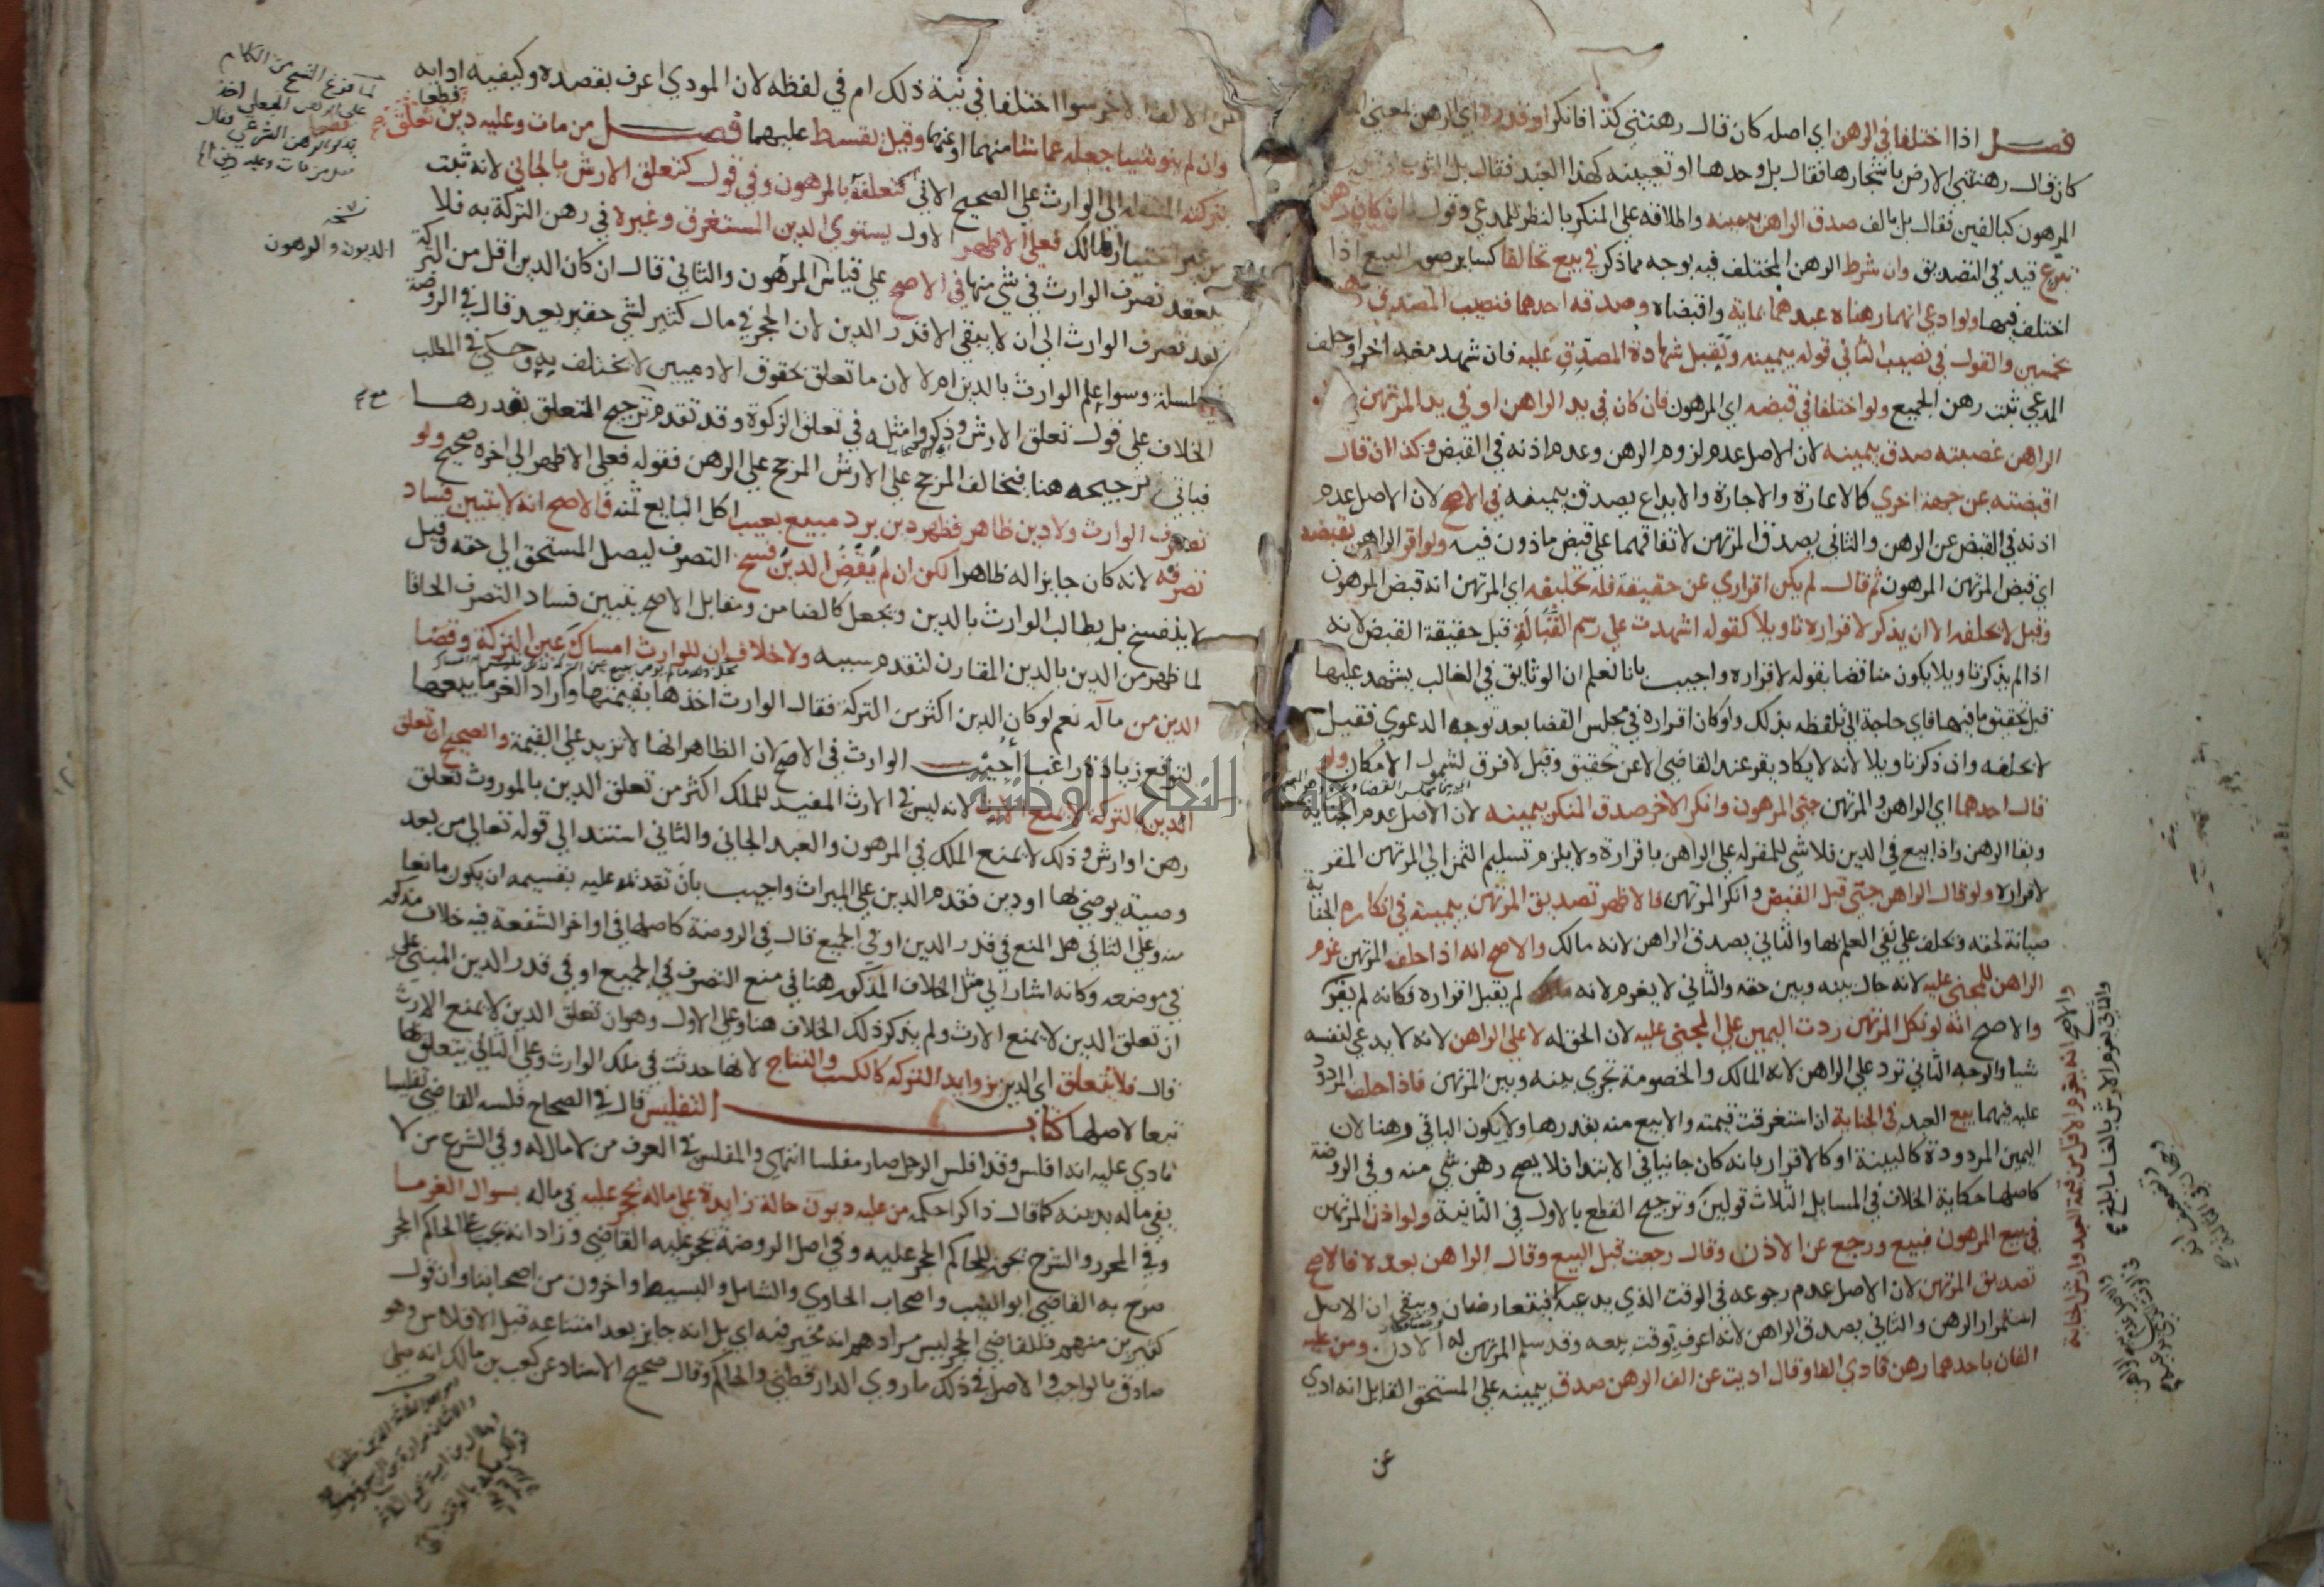 فصل اذا اختلفا في الرهن اي اصله كان قال رهنتني كذا فانكر او قدره اي الرهن بمعنى
كان قال رهنتني الارض باشجارها فقال بل وحدها او تعيينه كهذا العبد فقال بل الثوب او قدر
المرهون به كبالفين فقال بل بالف صدق الراهن بيمينه واطلاقه على المنكر بالنظر للمدعي وقوله ان كان رهن
تبرع قيد في التصديق وان شرط الرهن المختلف فيه بوجه مما ذكر في بيع تحالفا كساير صور البيع اذا
اختلف فيها ولو ادعى انهما رهناه عبدهما بماية واقبضاه وصدقه احدهما فنصيب المصدق رهن
بخمسين والقول في نصيب الثاني قوله بيمينه وتقبل شهادة المصدق عليه فان شهد معه اخر او حلف
المدعي ثبت رهن الجميع ولو اختلفا في قبضه اي المرهون فان كان في يد الراهن او في يد المرتهن
الراهن غصبته صدق بيمينه لان الاصل عدم لزوم الرهن وعدم اذنه في القبض وكذا ان قال
اقبضته عن جهة اخرى كالاعارة والاجارة والايداع يصدق بيمينه في الاصح لان الاصل عدم
اذنه في القبض عن الرهن والثاني يصدق المرتهن لاتفاقهما على قبض ماذون فيه ولو اقر الراهن بقبضه
اي قبض المرتهن المرهون ثم قال لم يكن اقراري عن حقيقة فله تحليفه اي المرتهن انه قبض المرهون
وقيل لا يحلفه الا ان يذكر لاقراره تاويلا كقوله اشهدت على رسم القبالة قبل حقيقة القبض لانه
اذا لم يذكر تاويلا يكون مناقضا بقوله لاقراره واجيب بانا نعلم ان الوثايق في الغالب يشهد عليها
قبل تحقيق ما فيها فاي حاجة الى تلفظه بذلك ولو كان اقراره في مجلس القضا بعد توجه الدعوى فقيل
لا يحلفه وان ذكر تاويلا لانه لا يكاد يقر عند القاضي الا عن تحقيق وقيل لا فرق لشمول الامكان ولو
قال احدهما اي الراهن والمرتهن جنى المرهون وانكر الاخر صدق المنكر بيمينه لان الاصل عدم الجناية
وبقا الرهن واذا بيع في الدين فلا شي للمقر له على الراهن باقراره ولا يلزم تسليم الثمن الى المرتهن المقر
لاقراره ولو قال الراهن جنى قبل القبض وانكر المرتهن فالاظهر تصديق المرتهن بيمينه في انكاره الجناية
صيانة لحقه ويحلف على نفي العلم بها والثاني يصدق الراهن لانه مالك والاصح انه اذا حلف المرتهن غرم
الراهن للمجني عليه لانه حال بينه وبين حقه والثاني لا يغرم لانه لم يقبل اقراره فكانه لم يقر
والاصح انه لو نكل المرتهن ردت اليمين على المجني عليه لان الحق له لا على الراهن لانه لا يدعي لنفسه
شيا والوجه الثاني ترد على الراهن لانه المالك والخصومة تجري بينه وبين المرتهن فاذا حلف المردود
عليه فيهما بيع العبد في الجناية ان استغرقت قيمته والا بيع منه بقدرها ولا يكون الباقي رهنا لان
اليمين المردودة كالبينة او كالاقرار بانه كان جانيا في الابتدا فلا يصح رهن شي منه وفي الروضة
كاصلها حكاية الخلاف في المسايل الثلاث قولين وترجيح القطع بالاول في الثانية ولو اذن المرتهن
في بيع المرهون فبيع ورجع عن الاذن وقال رجعت قبل البيع وقال الراهن بعده فالاصح
تصديق المرتهن لان الاصل عدم رجوعه في الوقت الذي يدعيه فيتعارضان ويبقى ان الاصل
استمرار الرهن والثاني يصدق الراهن لانه اعرف بوقت بيعه وقد سلم المرتهن له الاذن ومن عليه
الفان باحدهما رهن فادى الفا وقال اديت عن الف الرهن صدق بيمينه على المستحق القايل انه ادى
عن
والاصح انه يغرم الاقل من قيمة العبد وارش الجناية
والثاني يغرم الارش بالغا ما بلغ
عن الالف الاخر سوا اختلفا في نية ذلك ام في لفظه لان المودي اعرف بقصده وكيفية ادايه
وان لم ينو شيا جعله عما شا منهما او عنهما وقيل يقسط عليهما فصل من مات وعليه دين تعلق
بتركته المنتقلة الى الوارث على الصحيح الاتي كتعلقه بالمرهون وفي قول كتعلق الارش بالجاني لانه ثبت
من غير اختيار المالك فعلى الاظهر الاول يستوي الدين المستغرق وغيره في رهن التركة به فلا
ينفذ تصرف الوارث في شي منها في الاصح على قياس المرهون والثاني قال ان كان الدين اقل من التركة
نفذ تصرف الوارث الى ان لا يبقى الا قدر الدين لان الحجر في مال كثير لشي حقير بعيد قال في الروضة
المسلة وسوا علم الوارث بالدين ام لا لان ما تعلق بحقوق الادميين لا يختلف به وحكى في المطلب
الخلاف على قول تعلق الارش وذكروا مثله في تعلق الزكوة وقد تقدم ترجيح التعلق بقدرها
فياتي ترجيحه هنا فيخالف المرجح على الارش المرجح على الرهن فقوله فعلى الاظهر الى اخره صحيح ولو
تصرف الوارث ولا دين ظاهر فظهر دين برد مبيع بعيب اكل البايع ثمنه فالاصح انه لا يتبين فساد
تصرفه لانه كان جايزا له ظاهرا لكن ان لم يقض الدين فسخ التصرف ليصل المستحق الى حقه وقيل
لا يفسخ بل يطالب الوارث بالدين ويجعل كالضامن ومقابل الاصح يتبين فساد التصرف الحاقا
لما ظهر من الدين بالدين المقارن لتقدم سببه ولا خلاف ان للوارث امساك عين التركة وقضا
الدين من ماله نعم لو كان الدين اكثر من التركة فقال الوارث اخذها بقيمتها واراد الغرما بيعها
لتوقع زيادة راغب اجيب الوارث في الاصح لان الظاهر انها لا تزيد على القيمة والصحيح ان تعلق
الدين بالتركة لا يمنع الارث لانه ليس في الارث المفيد للملك اكثر من تعلق الدين بالموروث تعلق
رهن او ارش وذلك لا يمنع الملك في المرهون والعبد الجاني والثاني استند الى قوله تعالى من بعد
وصية يوصي بها او دين فقدم الدين على الميراث واجيب بان تقديمه عليه بقسيمه ان يكون مانعا
منه وعلى الثاني هل المنع في قدر الدين او في الجميع قال في الروضة كاصلها في اواخر الشفعة فيه خلاف مذكور
في موضعه وكانه اشار الى مثل الخلاف المذكور هنا في منع التصرف في الجميع او في قدر الدين المبني على
ان تعلق الدين لا يمنع الارث ولم يذكر ذلك الخلاف هنا وعلى الاول وهو ان تعلق الدين لا يمنع الارث
قال فلا يتعلق اي الدين بزوايد التركة كالكسب والنتاج لانها حدثت في ملك الوارث وعلى الثاني يتعلق بها
تبعا لاصلها كتاب التفليس قال في الصحاح فلسه القاضي تفليسا
نادى عليه انه افلس وقد افلس الرجل صار مفلسا انتهى والمفلس في العرف من لا مال له وفي الشرع من لا
يفي ماله بدينه كما قال ذاكرا حكمه من عليه ديون حالة زايدة على ماله يحجر عليه في ماله بسوال الغرما
وفي المحرر والشرح يحق للحاكم الحجر عليه وفي اصل الروضة يحجر عليه القاضي وزاد انه يجب على الحاكم الحجر
صرح به القاضي ابو الطيب واصحاب الحاوي والشامل والبسيط واخرون من اصحابنا وان قول
كثيرين منهم فللقاضي الحجر ليس مرادهم انه مخير فيه اي بل انه جايز بعد امتناعه قبل الافلاس وهو
صادق بالواجب والاصل في ذلك ما روى الدارقطني والحاكم وقال صحيح الاسناد عن كعب بن مالك انه صلى
لما فرغ الشيخ من الكلام
على الرهن الجعلي اخذ
يتكلم على الرهن الشرعي فقال
فصل من مات وعليه دين الخ
نسخة
الديون والرهون
جامعة النجاح الوطنية